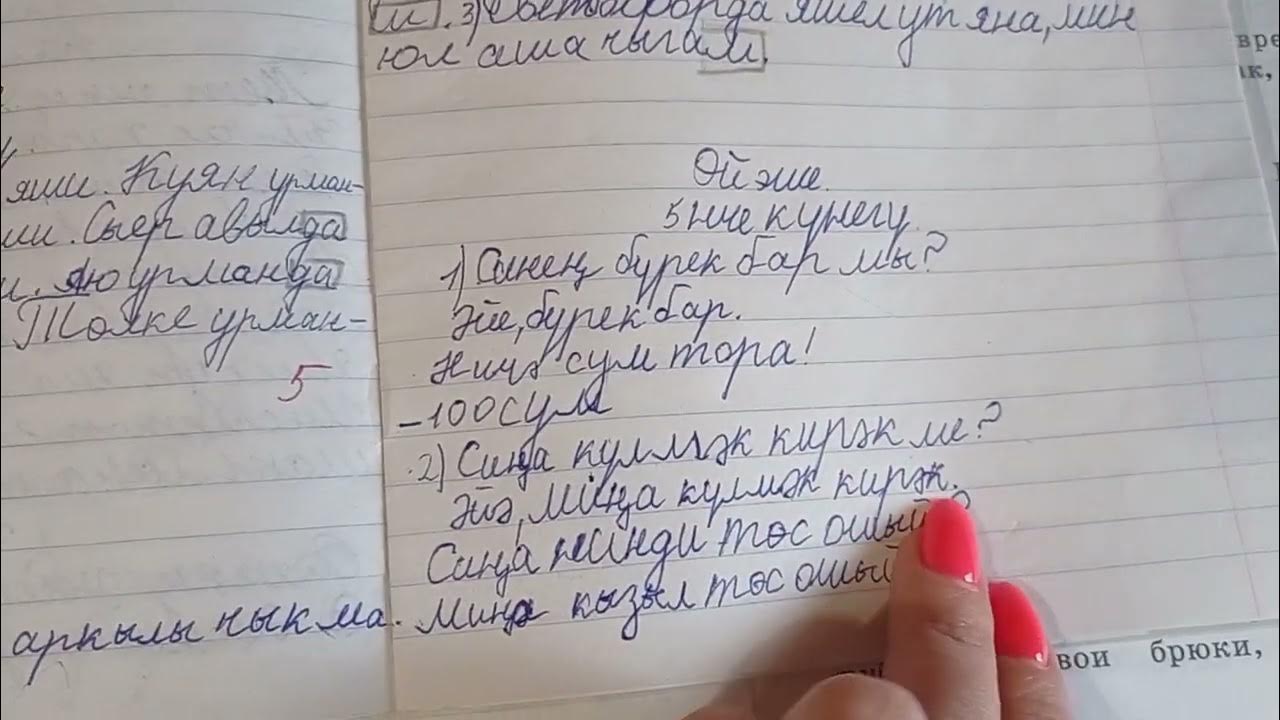 и. 3) Светофорда яшел ут яна, мин
юл аша чыгам.
вре
ак,
яши. Куян урман-
ши. Сыер авылда
и. Аю урманда
Төлке урман-
5
аркылы чыкма.
Өй эше.
5 нче күнегү.
1) Синең бүрек бар мы?
Әйе, бүрек бар.
Ничә сум тора!
– 100 сум
2) Сиңа күлмәк кирәк ме?
Әйә, миңа күлмәк кирәк.
Сиңа нинди төс ошый ?
Миңа кызыл төс ошый
вои брюки,